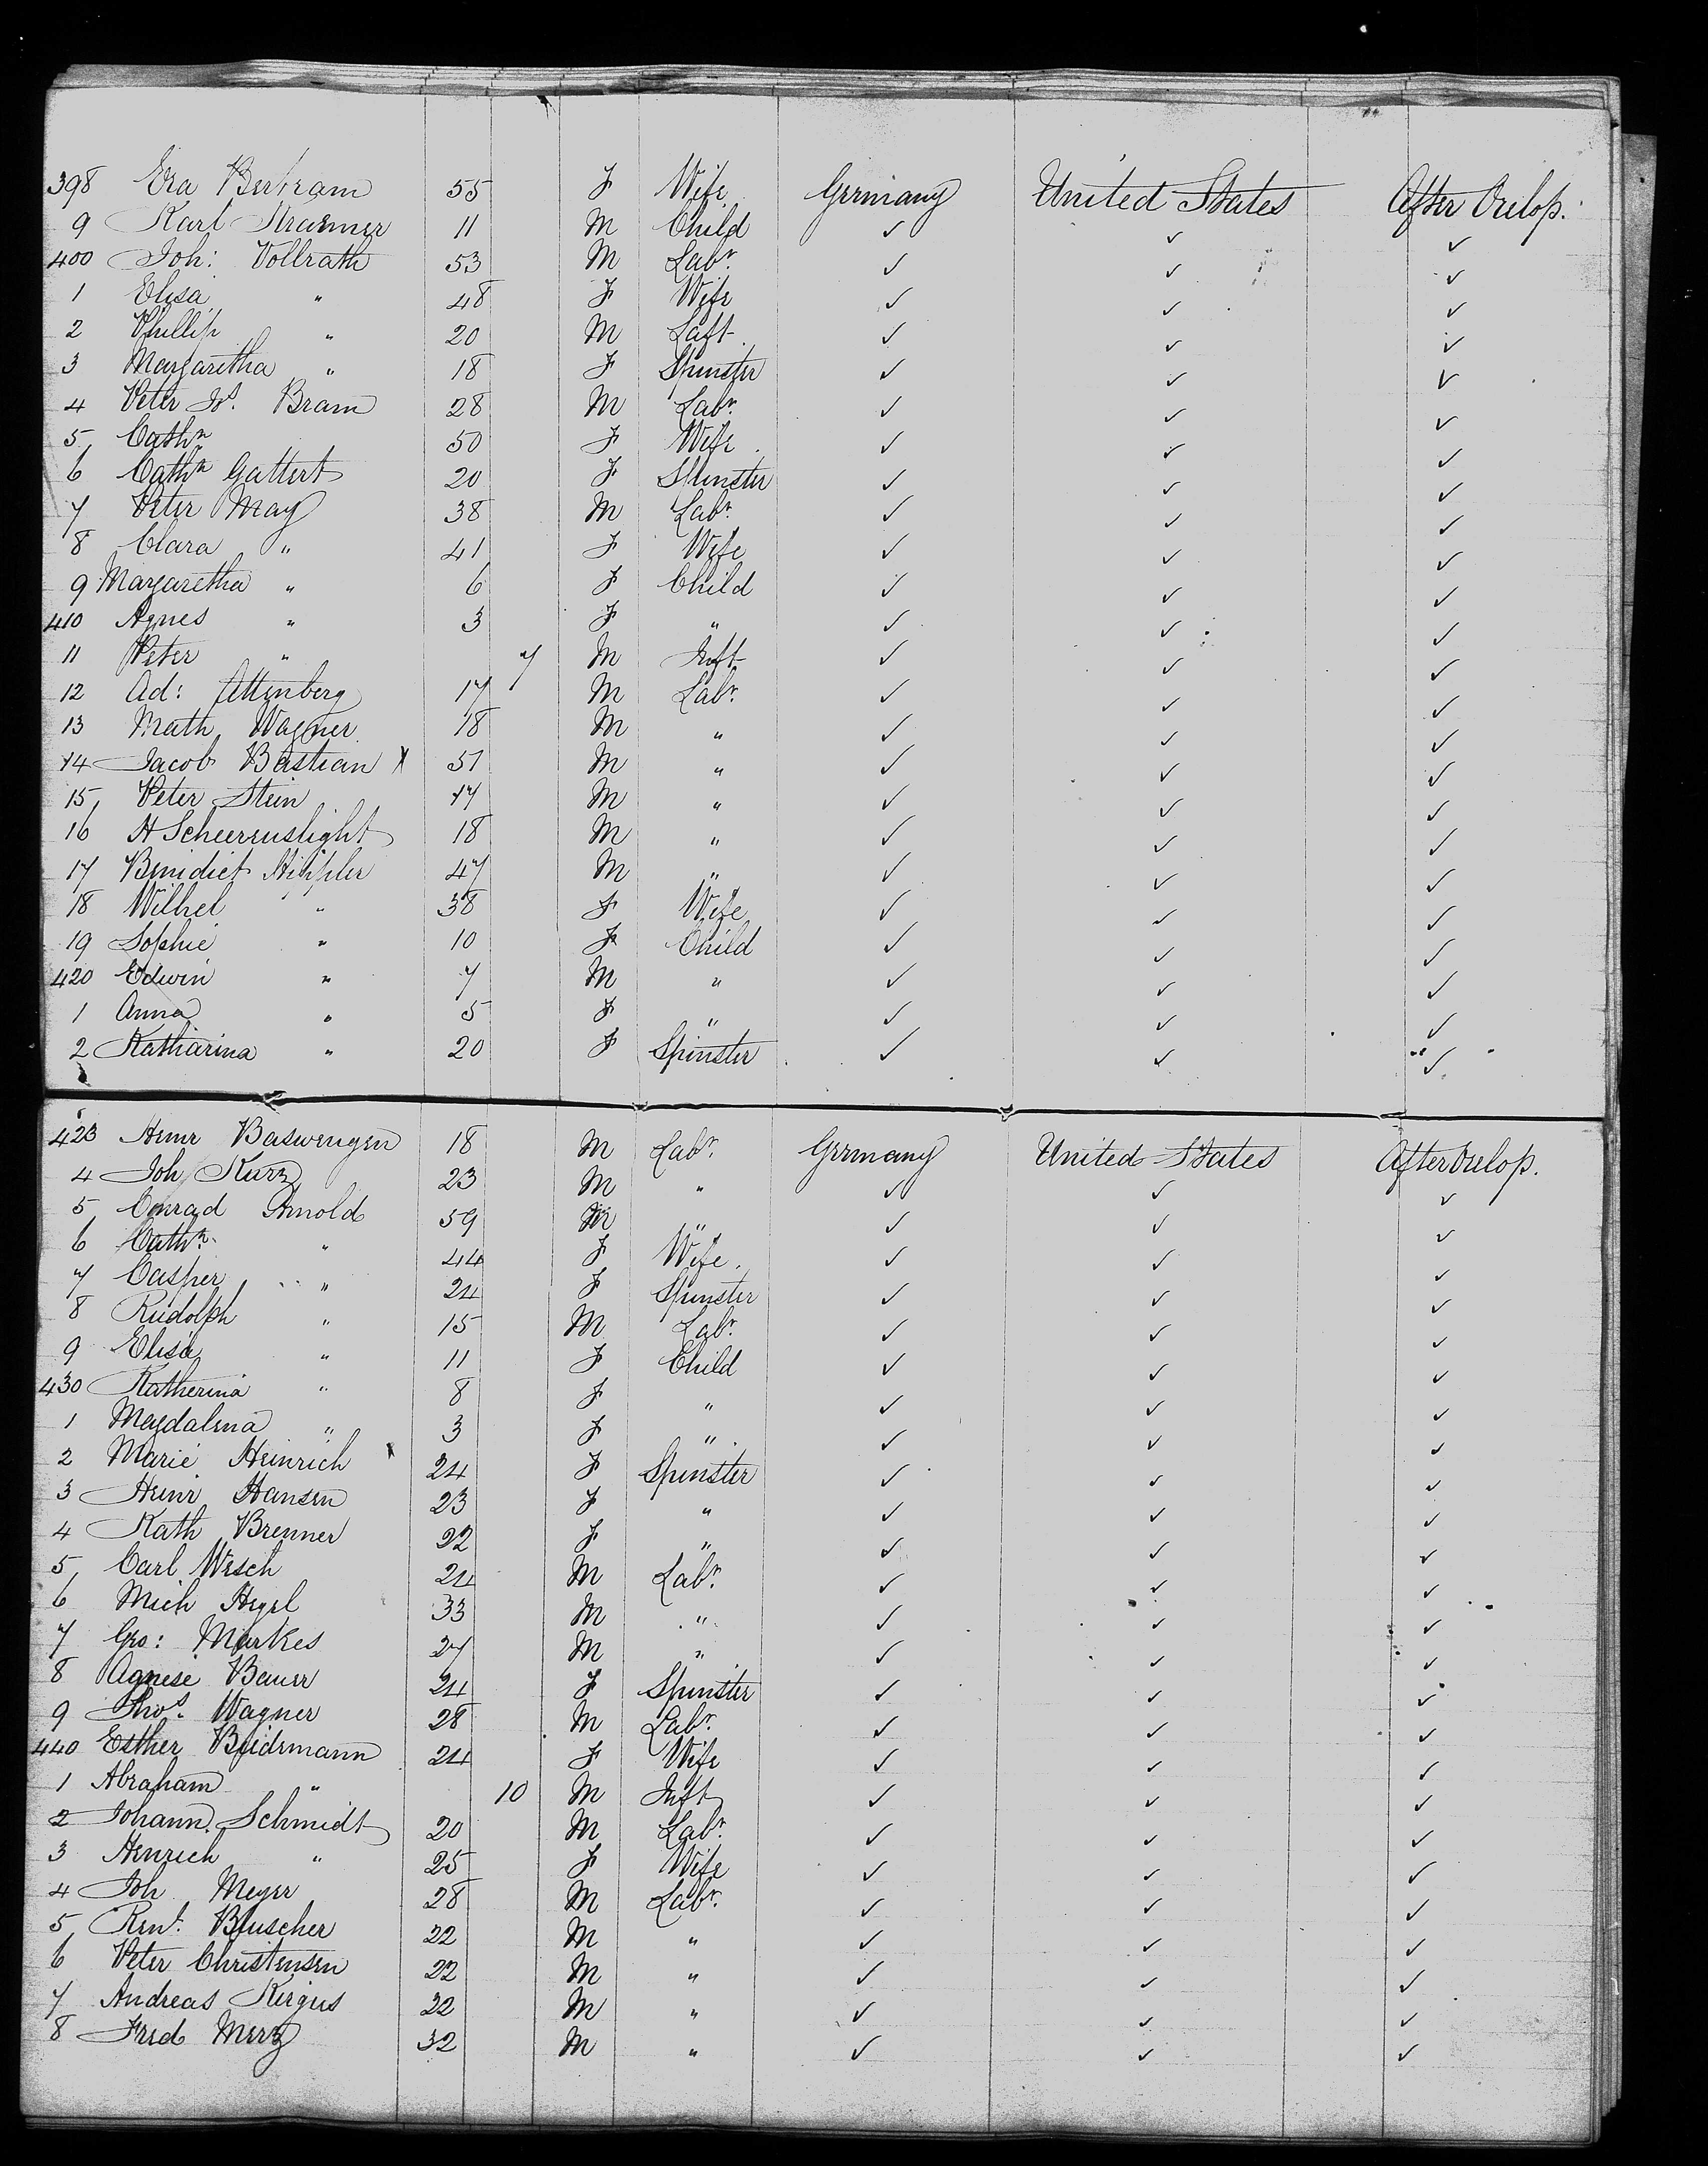 398 Eva Bertram 55 F Wife Germany United States After Orlop.
9 Karl Straenner 11 M Child ✓ ✓ ✓
400 Joh: Vollrath 53 M Labr. ✓ ✓ ✓
1 Elisa " 48 F Wife ✓ ✓ ✓
2 Phillip " 20 M Labr ✓ ✓ ✓
3 Margaretha " 18 F Spinster ✓ ✓ ✓
4 Peter Js. Bram 28 M Labr. ✓ ✓ ✓
5 Cathn 50 F Wife ✓ ✓ ✓
6 Cathn Gattert 20 F Spinster ✓ ✓ ✓
7 Peter May 38 M Labr. ✓ ✓ ✓
8 Clara " 41 F Wife ✓ ✓ ✓
9 Margaretha " 6 F Child ✓ ✓ ✓
410 Agnes " 3 F " ✓ ✓ ✓
11 Peter " 7 M Inft ✓ ✓ ✓
12 Ad: Attenberg 17 M Labr. ✓ ✓ ✓
13 Math Wagner 18 M " ✓ ✓ ✓
14 Jacob Bastian X 51 M " ✓ ✓ ✓
15 Peter Stein 17 M " ✓ ✓ ✓
16 H Scheerenslight 18 M " ✓ ✓ ✓
17 Benidict Hippler 47 M " ✓ ✓ ✓
18 Wilhel " 38 F Wife ✓ ✓ ✓
19 Sophie " 10 F Child ✓ ✓ ✓
420 Edwin " 7 M " ✓ ✓ ✓
1 Anna " 5 F " ✓ ✓ ✓
2 Katharina " 20 F Spinster ✓ ✓ ✓
423 Heinr Baswengen 18 M Labr. Germany United States After Orlop.
4 Joh Kurz 23 M " ✓ ✓ ✓
5 Conrad Arnold 59 M " ✓ ✓ ✓
6 Cathn. " 44 F Wife. ✓ ✓ ✓
7 Casper " 24 F Spinster ✓ ✓ ✓
8 Rudolph " 15 M Labr. ✓ ✓ ✓
9 Elisa " 11 F Child ✓ ✓ ✓
430 Katherina " 8 F " ✓ ✓ ✓
1 Magdalena " 3 F " ✓ ✓ ✓
2 Marie Heinrich 24 F Spinster ✓ ✓ ✓
3 Heinr Hansen 23 F " ✓ ✓ ✓
4 Kath Brenner 22 F " ✓ ✓ ✓
5 Carl Wesch 24 M Labr. ✓ ✓ ✓
6 Mich Hegel 33 M " ✓ ✓ ✓
7 Geo: Markes 27 M " ✓ ✓ ✓
8 Agnese Bauer 24 F Spinster ✓ ✓ ✓
9 Thos. Wagner 28 M Labr. ✓ ✓ ✓
440 Esther Beidrmann 24 F Wife ✓ ✓ ✓
1 Abraham " 10 M Inft ✓ ✓ ✓
2 Johann Schmidt 20 M Labr. ✓ ✓ ✓
3 Henrich " 25 F Wife ✓ ✓ ✓
4 Joh Meyer 28 M Labr. ✓ ✓ ✓
5 Bluscher 22 M " ✓ ✓ ✓
6 Peter Christensen 22 M " ✓ ✓ ✓
7 Andreas Kirgus 22 M " ✓ ✓ ✓
8 Fred Merz 32 M " ✓ ✓ ✓